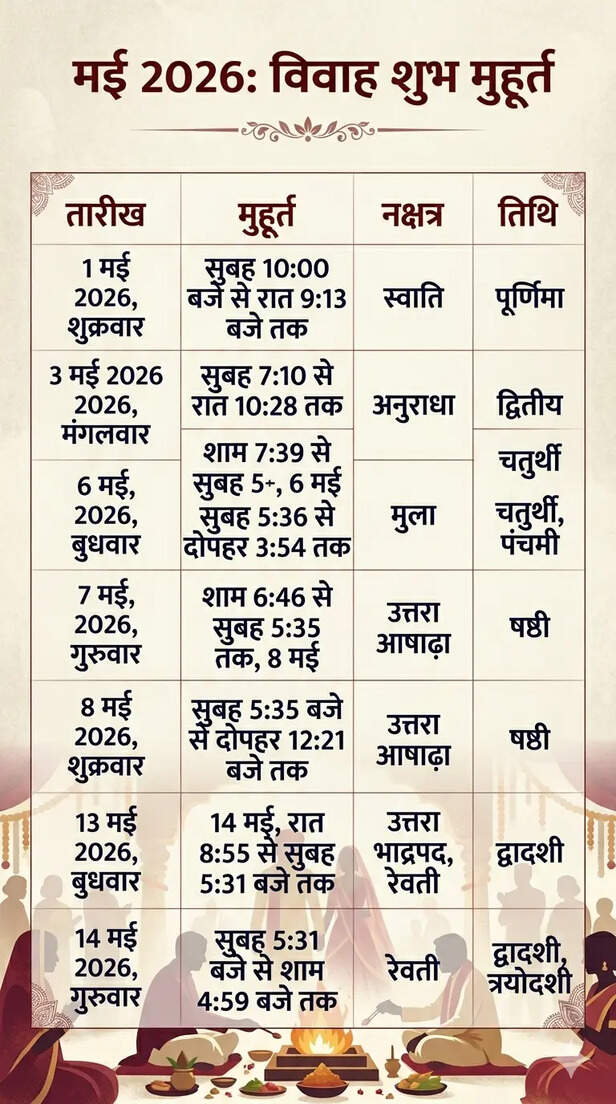 मई 2026: विवाह शुभ मुहूर्त
तारीख
मुहूर्त
नक्षत्र
तिथि
1 मई
2026,
शुक्रवार
सुबह 10:00
बजे से रात 9:13
बजे तक
स्वाति
पूर्णिमा
3 मई 2026
2026,
मंगलवार
सुबह 7:10 से
रात 10:28 तक
अनुराधा
द्वितीय
शाम 7:39 से
सुबह 5+, 6 मई
चतुर्थी
6 मई,
2026,
बुधवार
सुबह 5:36 से
दोपहर 3:54 तक
मुला
चतुर्थी,
पंचमी
7 मई,
2026,
गुरुवार
शाम 6:46 से
सुबह 5:35
तक, 8 मई
उत्तरा
आषाढ़ा
षष्ठी
8 मई
2026,
शुक्रवार
सुबह 5:35 बजे
से दोपहर 12:21
बजे तक
उत्तरा
आषाढ़ा
षष्ठी
13 मई
2026,
बुधवार
14 मई, रात
8:55 से सुबह
5:31 बजे तक
उत्तरा
भाद्रपद,
रेवती
द्वादशी
14 मई
2026,
गुरुवार
सुबह 5:31
बजे से शाम
4:59 बजे तक
रेवती
द्वादशी,
त्रयोदशी